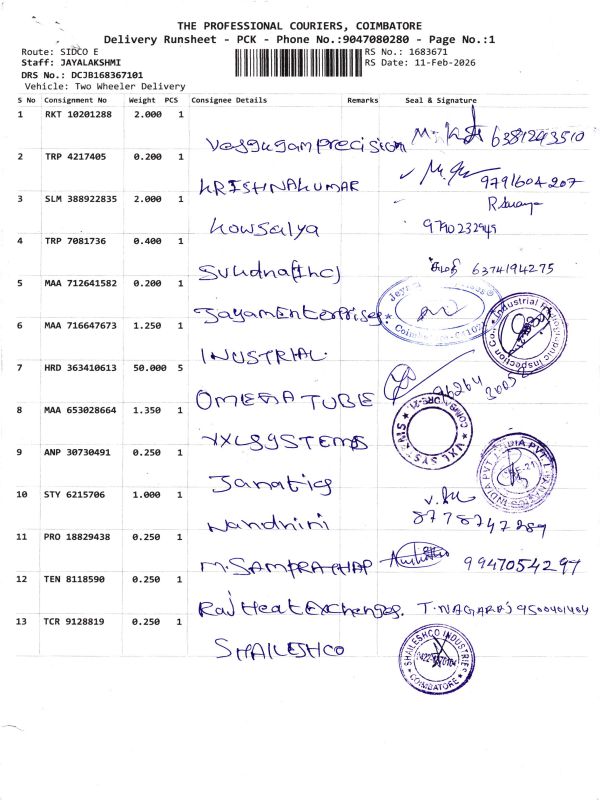 THE PROFESSIONAL COURIERS, COIMBATORE
Delivery Runsheet - PCK - Phone No.:9047080280 - Page No.:1
Route: SIDCO E RS No.: 1683671
Staff: JAYALAKSHMI RS Date: 11-Feb-2026
DRS No.: DCJB168367101
Vehicle: Two Wheeler Delivery
S No Consignment No Weight PCS Consignee Details Remarks Seal & Signature
1 RKT 10201288 2.000 1 precision 6381243510
2 TRP 4217405 0.200 1 KRISHNAKUMAR 9791604207
3 SLM 388922835 2.000 1 Kowsalya 9790232949
4 TRP 7081736 0.400 1 6374194275
5 MAA 712641582 0.200 1 Jayam Enterprises
6 MAA 716647673 1.250 1 INUSTRIAL Industrial Radiographic Inspection Co.
7 HRD 363410613 50.000 5 OMEGA TUBE 96264
8 MAA 653028664 1.350 1 VXLSYSTEMS VXL SYSTEMS
9 ANP 30730491 0.250 1 Janatics
10 STY 6215706 1.000 1 Nandhini 8778747289
11 PRO 18829438 0.250 1 M.SAMPRATHAP 9947054297
12 TEN 8118590 0.250 1 Raj Heat Exchenges. T.NAGARAJ
13 TCR 9128819 0.250 1 SHAILESHCO SHAILESHCO INDUSTRIES COIMBATORE